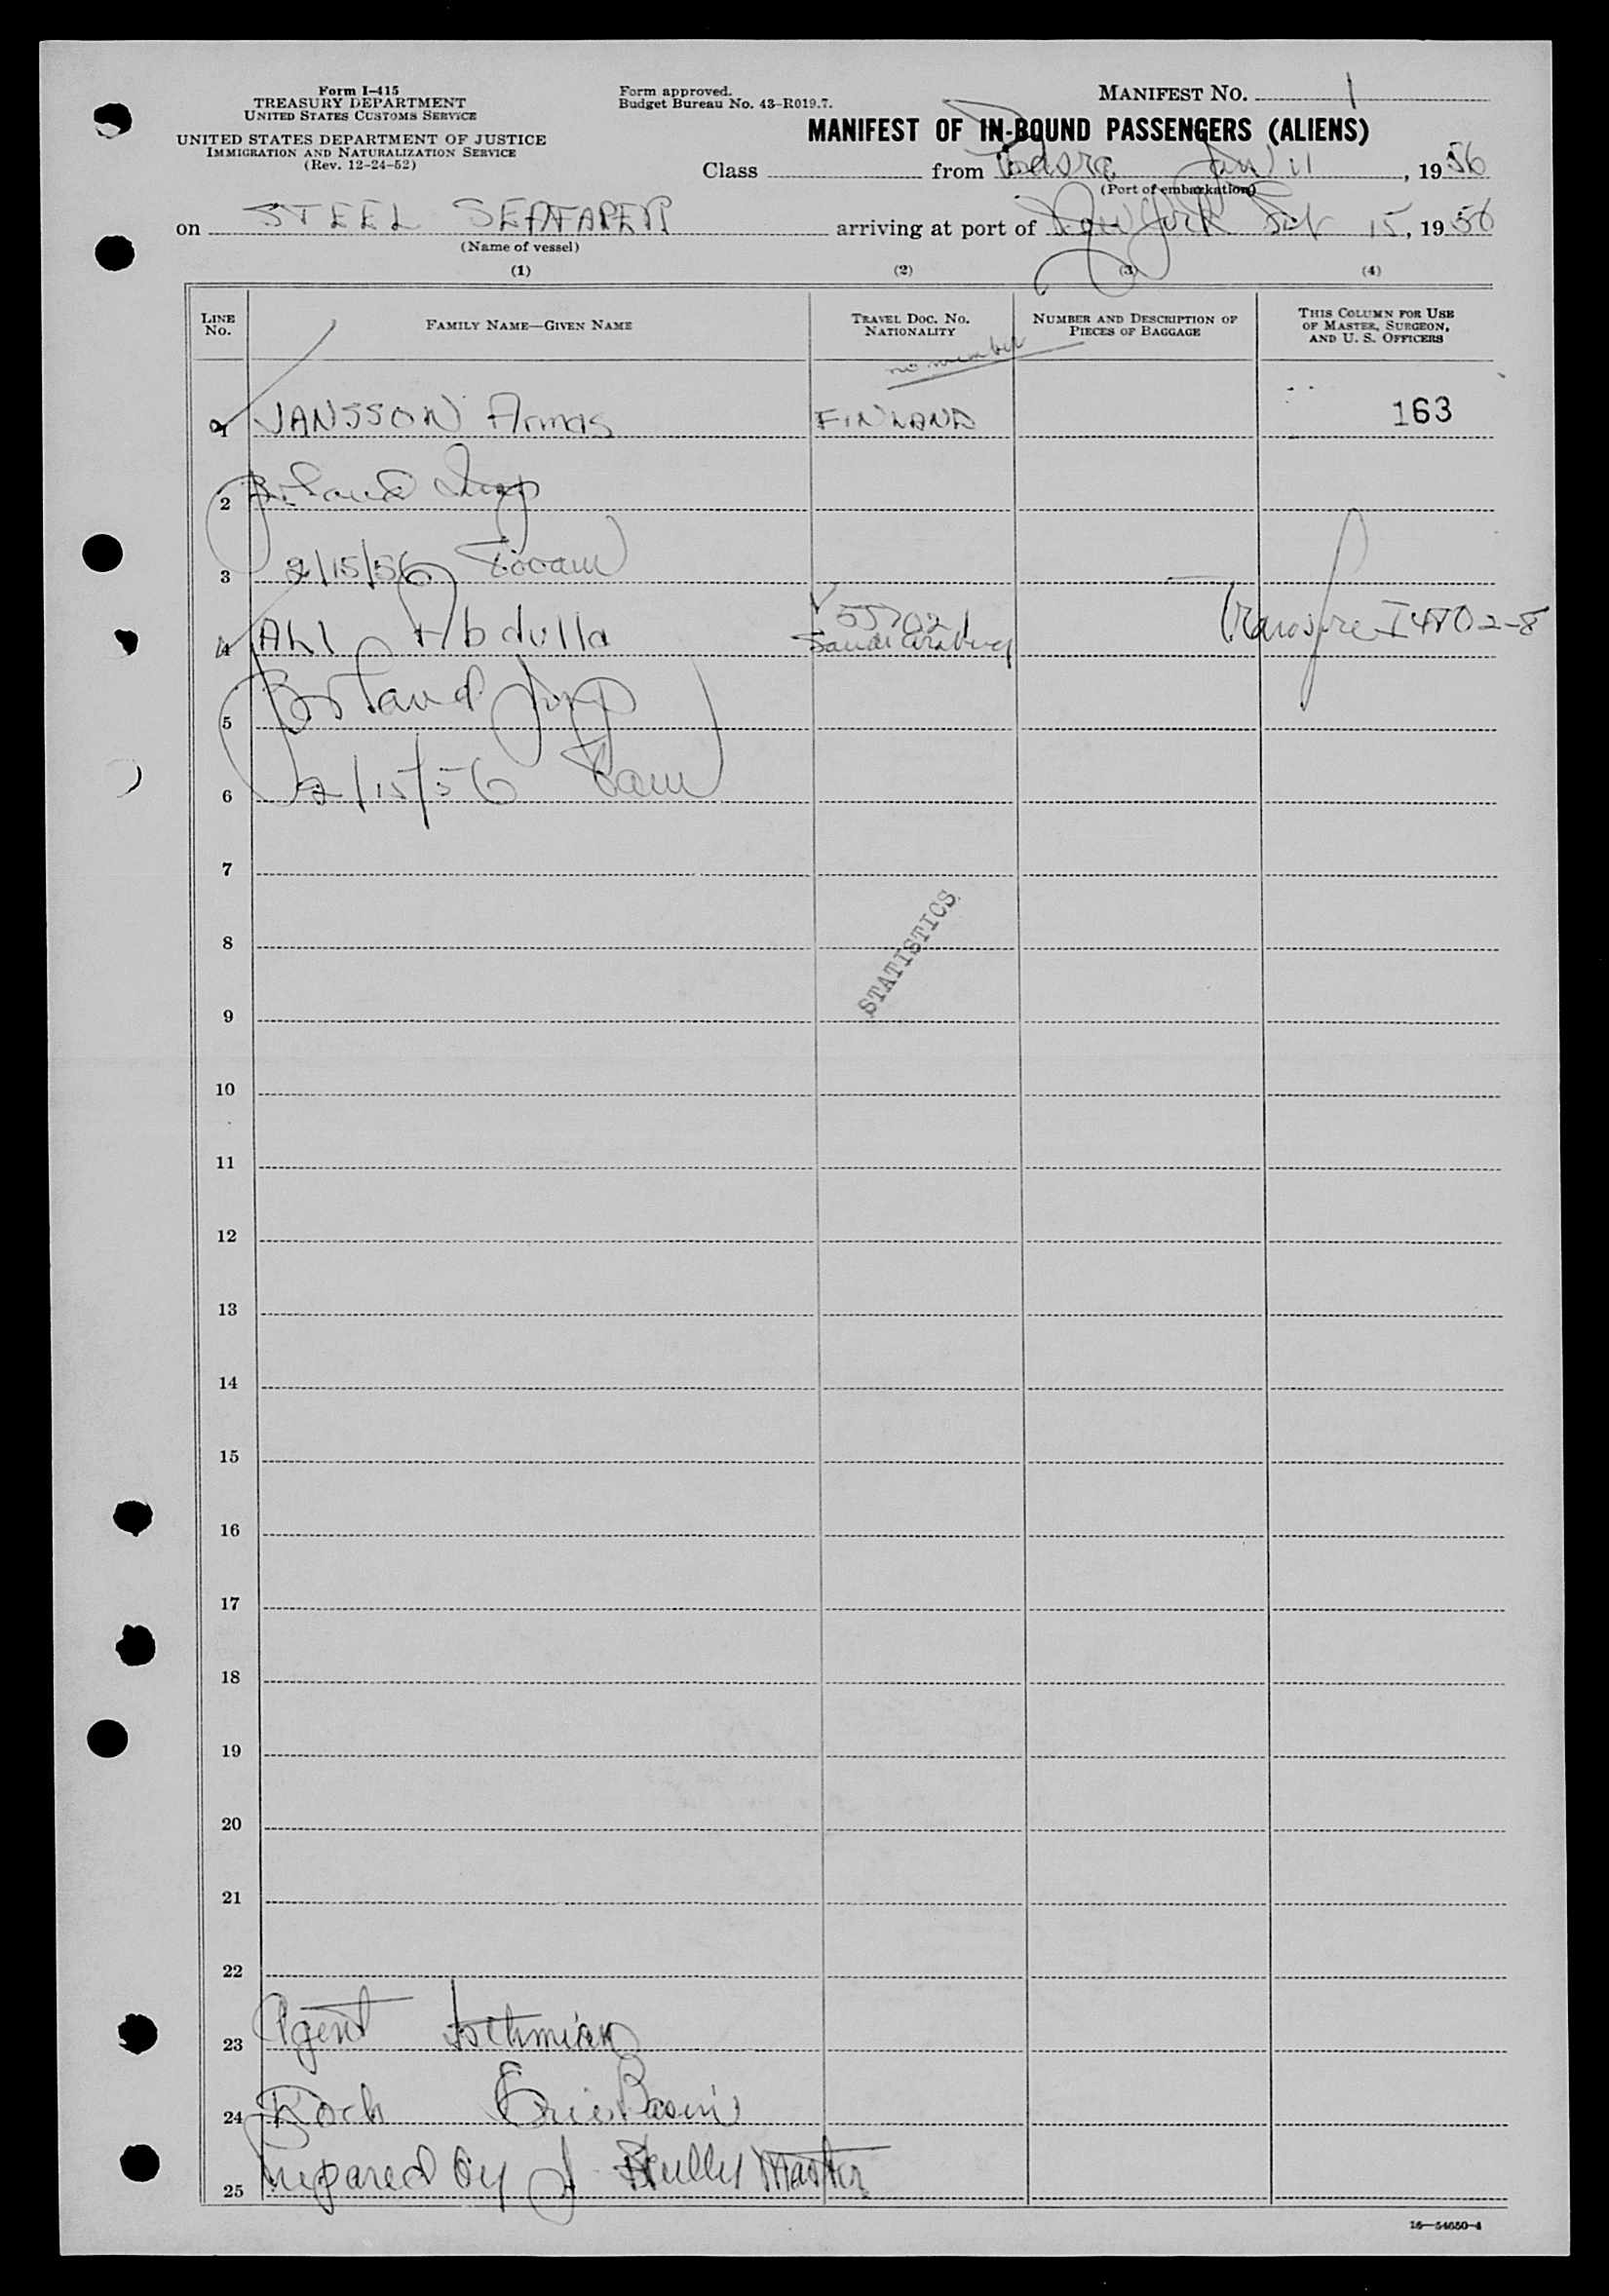 Form I-415
TREASURY DEPARTMENT
UNITED STATES CUSTOMS SERVICE
UNITED STATES DEPARTMENT OF JUSTICE
IMMIGRATION AND NATURALIZATION SERVICE
(Rev. 12-24-52)
Form approved.
Budget Bureau No. 43-R019.7.
MANIFEST NO. 1
MANIFEST OF IN-BOUND PASSENGERS (ALIENS)
Class from Basra Jan 11, 1956
(Port of embarkation)
on STEEL SEAFARER arriving at port of New York Feb 15, 1956
(Name of vessel)
(1) (2) (3) (4)
LINE NO. FAMILY NAME—GIVEN NAME TRAVEL DOC. NO. NATIONALITY NUMBER AND DESCRIPTION OF PIECES OF BAGGAGE THIS COLUMN FOR USE OF MASTER, SURGEON, AND U. S. OFFICERS
no number
1 JANSSON Armas FINLAND 163
2
3 2/15/56
4 ALI Abdulla 55702 Saudi Arabia I
5
6 2/15/56
7
8
STATISTICS
9
10
11
12
13
14
15
16
17
18
19
20
21
22
23 Agent Isthmian
24 Dock Erie Basin
25 Prepared by J Skully Master
16—54650-4